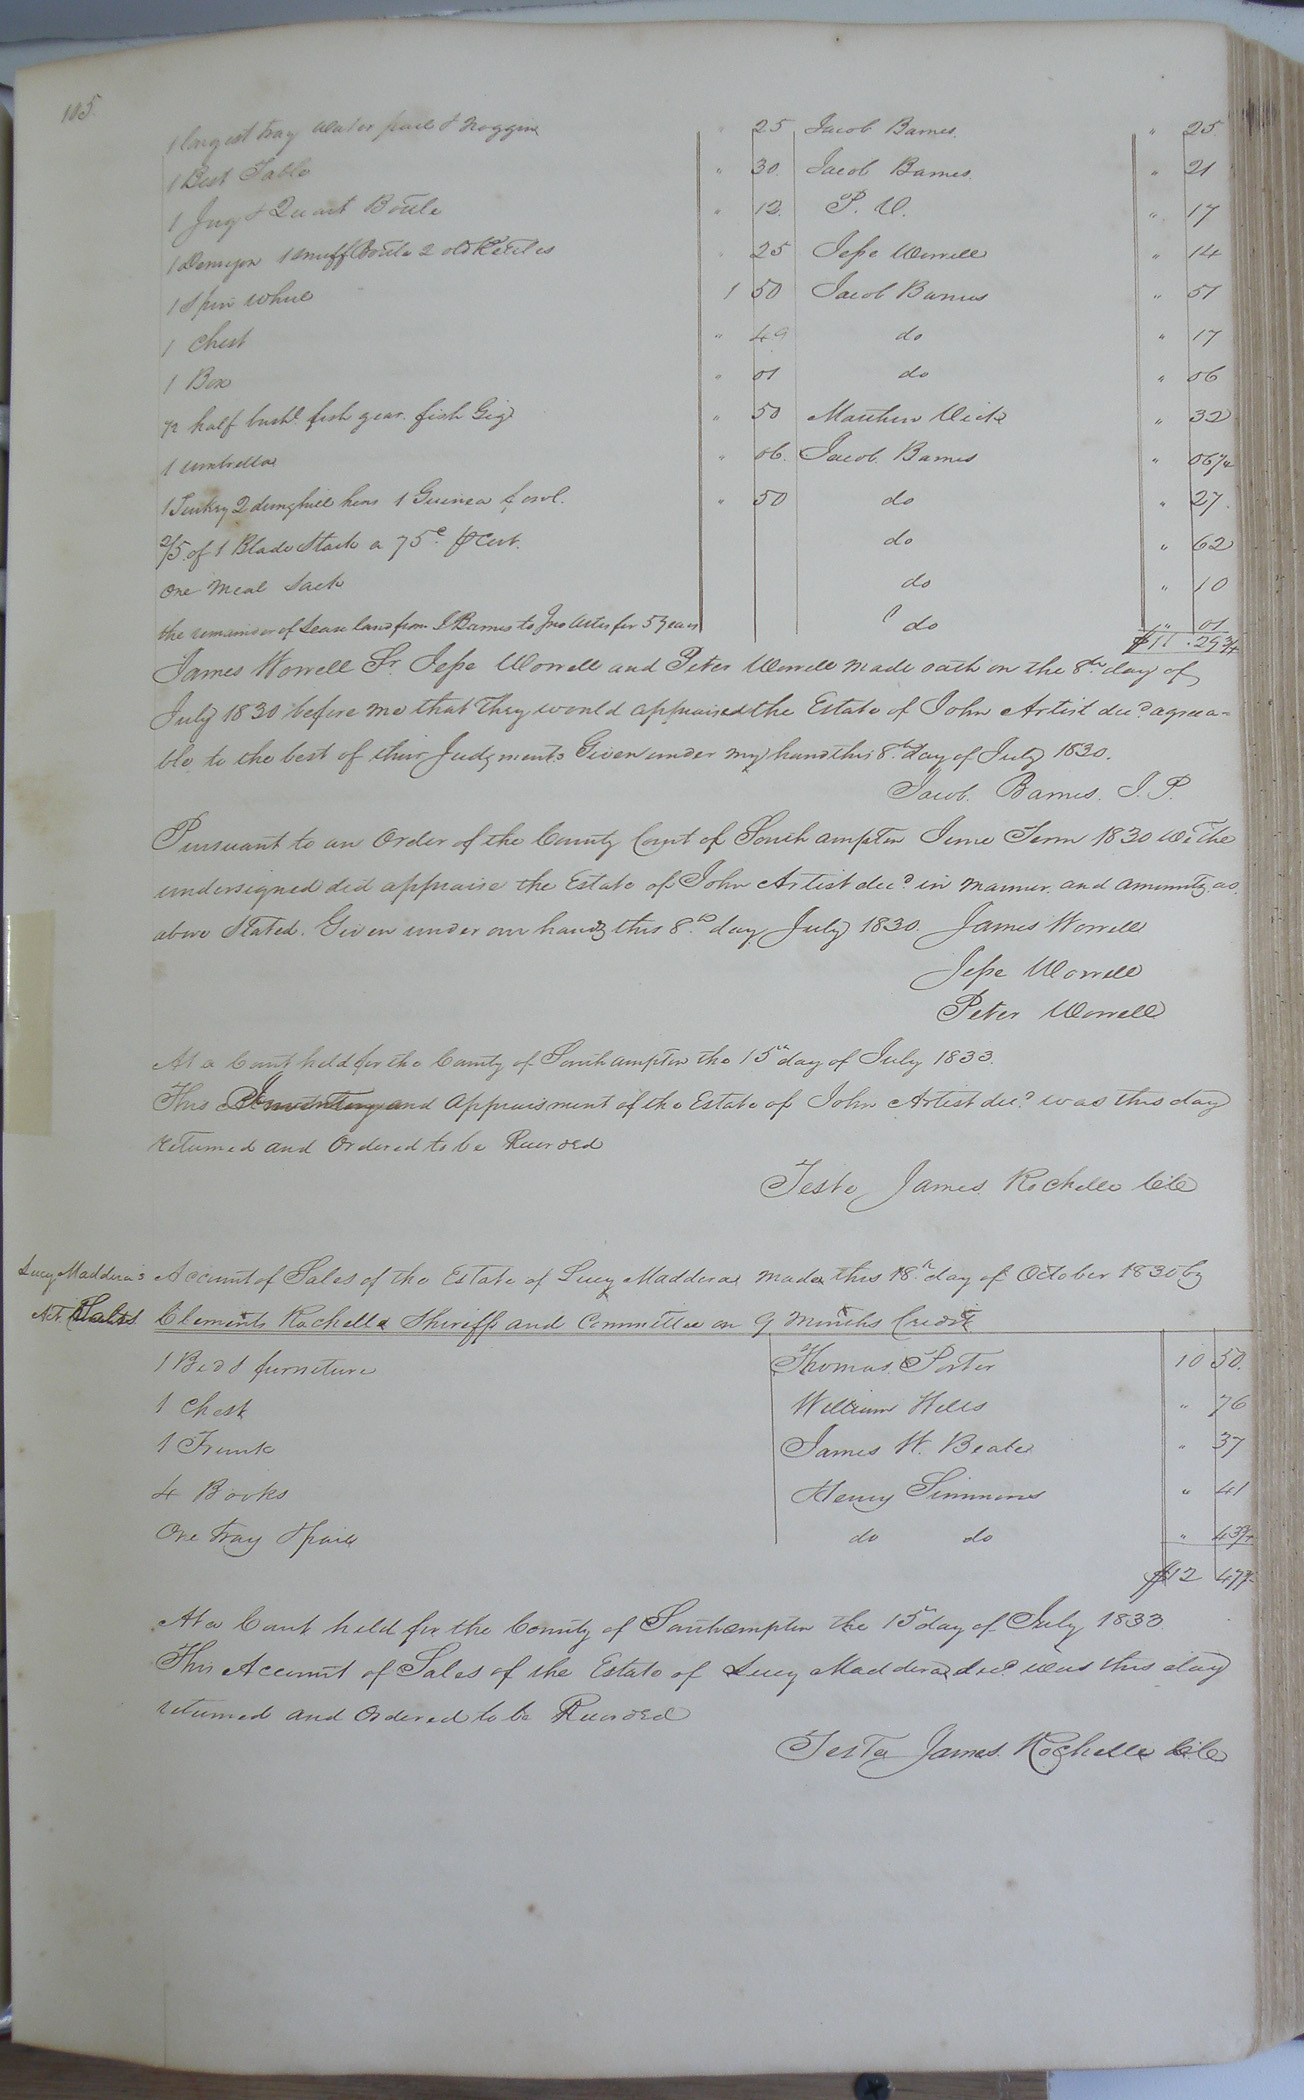 105
1 largest tray water pail & noggin " 25 Jacob Barnes " 25
1 Best Table " 30 Jacob Barnes " 21
1 Jug & Quart Bottle " 12 P. W. " 17
1 Demijon 1 snuff Bottle 2 old Kettles " 25 Jesse Worrell " 14
1 Spin wheel 1 50 Jacob Barnes " 51
1 Chest " 49 do " 17
1 Box " 01 do " 06
½ half bushl fish gear. fish Gig " 50 Matthew Vick " 32
1 umbrella " 06 Jacob Barnes " 06¼
1 Turkey 2 dunghill hens 1 Guinea fowl. " 50 do " 27
2/5 of 1 Blade Stack a 75c pr Cwt. do " 62
One meal Sack do " 10
the remainder of Lease land from J Barnes to Jno Artis for 5 years do " 01
$11.29¾
James Worrell Sr Jesse Worrell and Peter Worrell made oath on the 8th day of
July 1830 before me that they would appraised the Estate of John Artist decd agreea-
ble to the best of their Judgments Given under my hand this 8th day of July 1830.
Jacob Barnes J. P.
Pursuant to an Order of the County Court of Southampton June Term 1830 We the
undersigned did appraise the Estate of John Artist decd in manner and amounts as
above Stated. Given under our hands this 8th day July 1830. James Worrell
Jesse Worrell
Peter Worrell
At a Court held for the County of Southampton the 15th day of July 1833.
This Inventory and Appraisment of the Estate of John Artist decd was this day
returned and Ordered to be Recorded
Teste James Rochelle Clk
Lucy Maddera's Account of Sales of the Estate of Lucy Madderas made this 18th day of October 1830 by
Act. Sales Clements Rochelle Sheriff and Committee on 9 Months Credit
1 Bed & furniture Thomas Porter 10 50
1 Chest William Hills " 76
1 Trunk James W. Beale " 37
4 Books Henry Simmons " 41
One Tray & pail do do " 43¾
$12 47¾
At a Court held for the County of Southampton the 15th day of July 1833
This Account of Sales of the Estate of Lucy Madderas decd was this day
returned and Ordered to be Recorded
Teste James Rochelle Clk